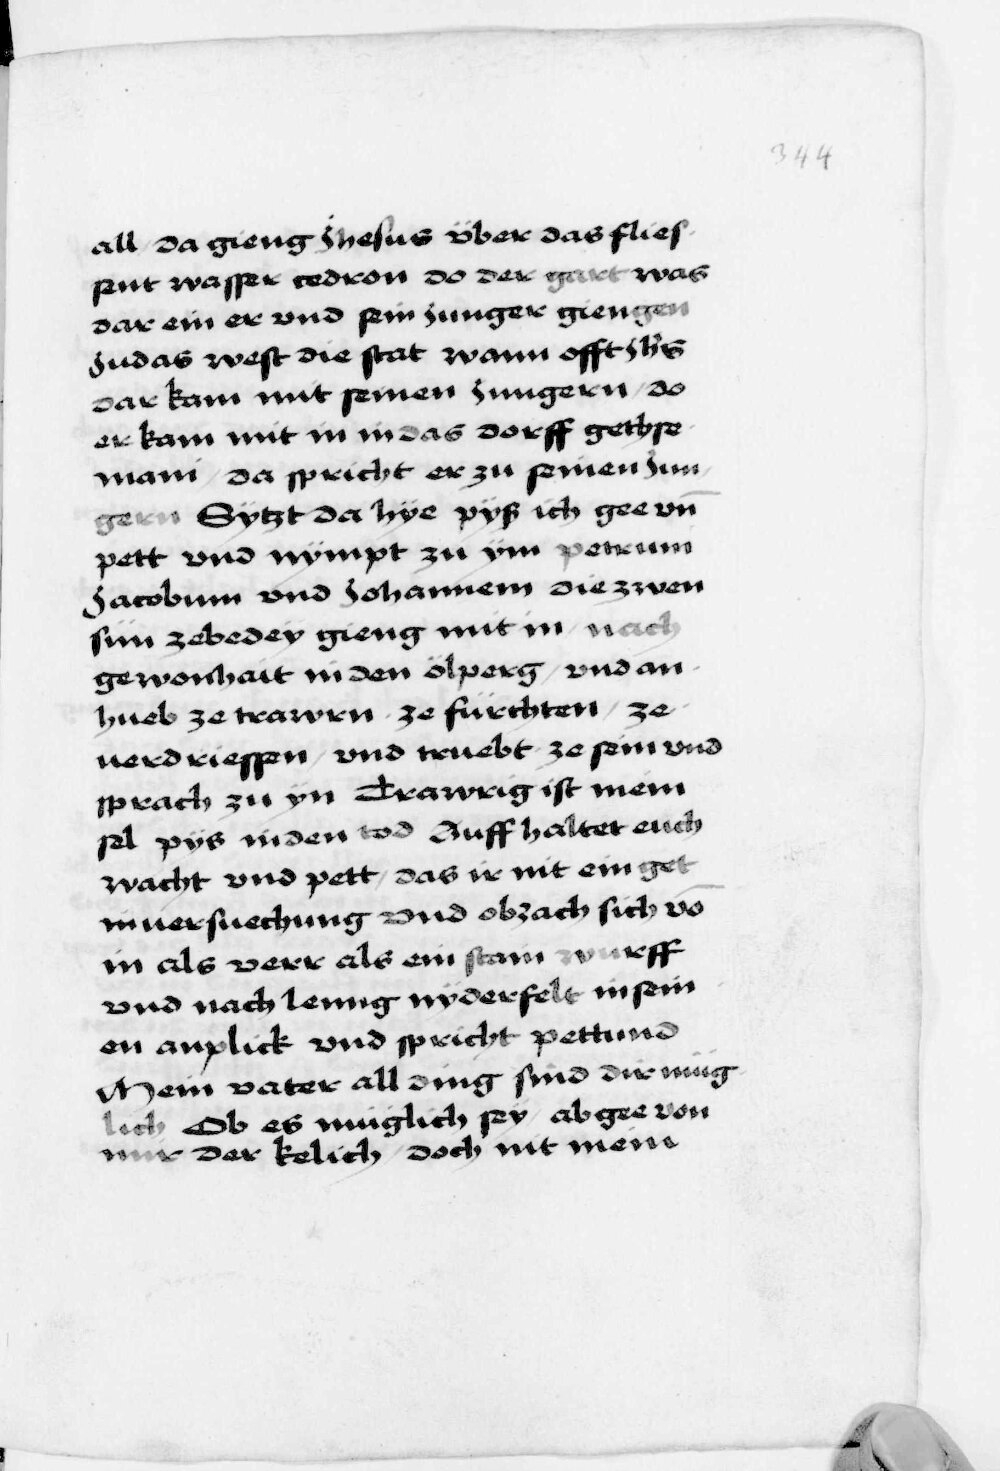 344
all / da gieng Jhesus über das flies-
sent wasser cedron do der gart was
dar ein er vnd sein Junger giengen
Judas west die stat wann offt Jhs
dar kam mit seinen Jungern / do
er kam mit in in das dorff gethse-
mani / da spricht er zu seinen Jun-
gern Sÿtzt da hÿe pÿß ich gee vn̄
pett vnd nÿmpt zu ÿm petrum
Jacobum vnd Johannem die zwen
sün zebedeÿ gieng mit in / nach
gewonhait in den ölperg / vnd an-
hueb ze trawrn · ze fürchten / ze
uerdriessen / vnd truebt ze sein vnd
sprach zu ÿn Trawrig ist mein
sel pÿs in den tod Auff haltet euch
wacht vnd pett / das ir nit ein get
in uersuechung vnd obzach sich vō
in als verr als ein stain wurff
vnd nach leng nÿderfelt in sein
en anplick vnd spricht pettund
Mein vater all ding sind dir müg-
lich Ob es müglich seÿ / ab gee von
mir der kelich / doch nit mein